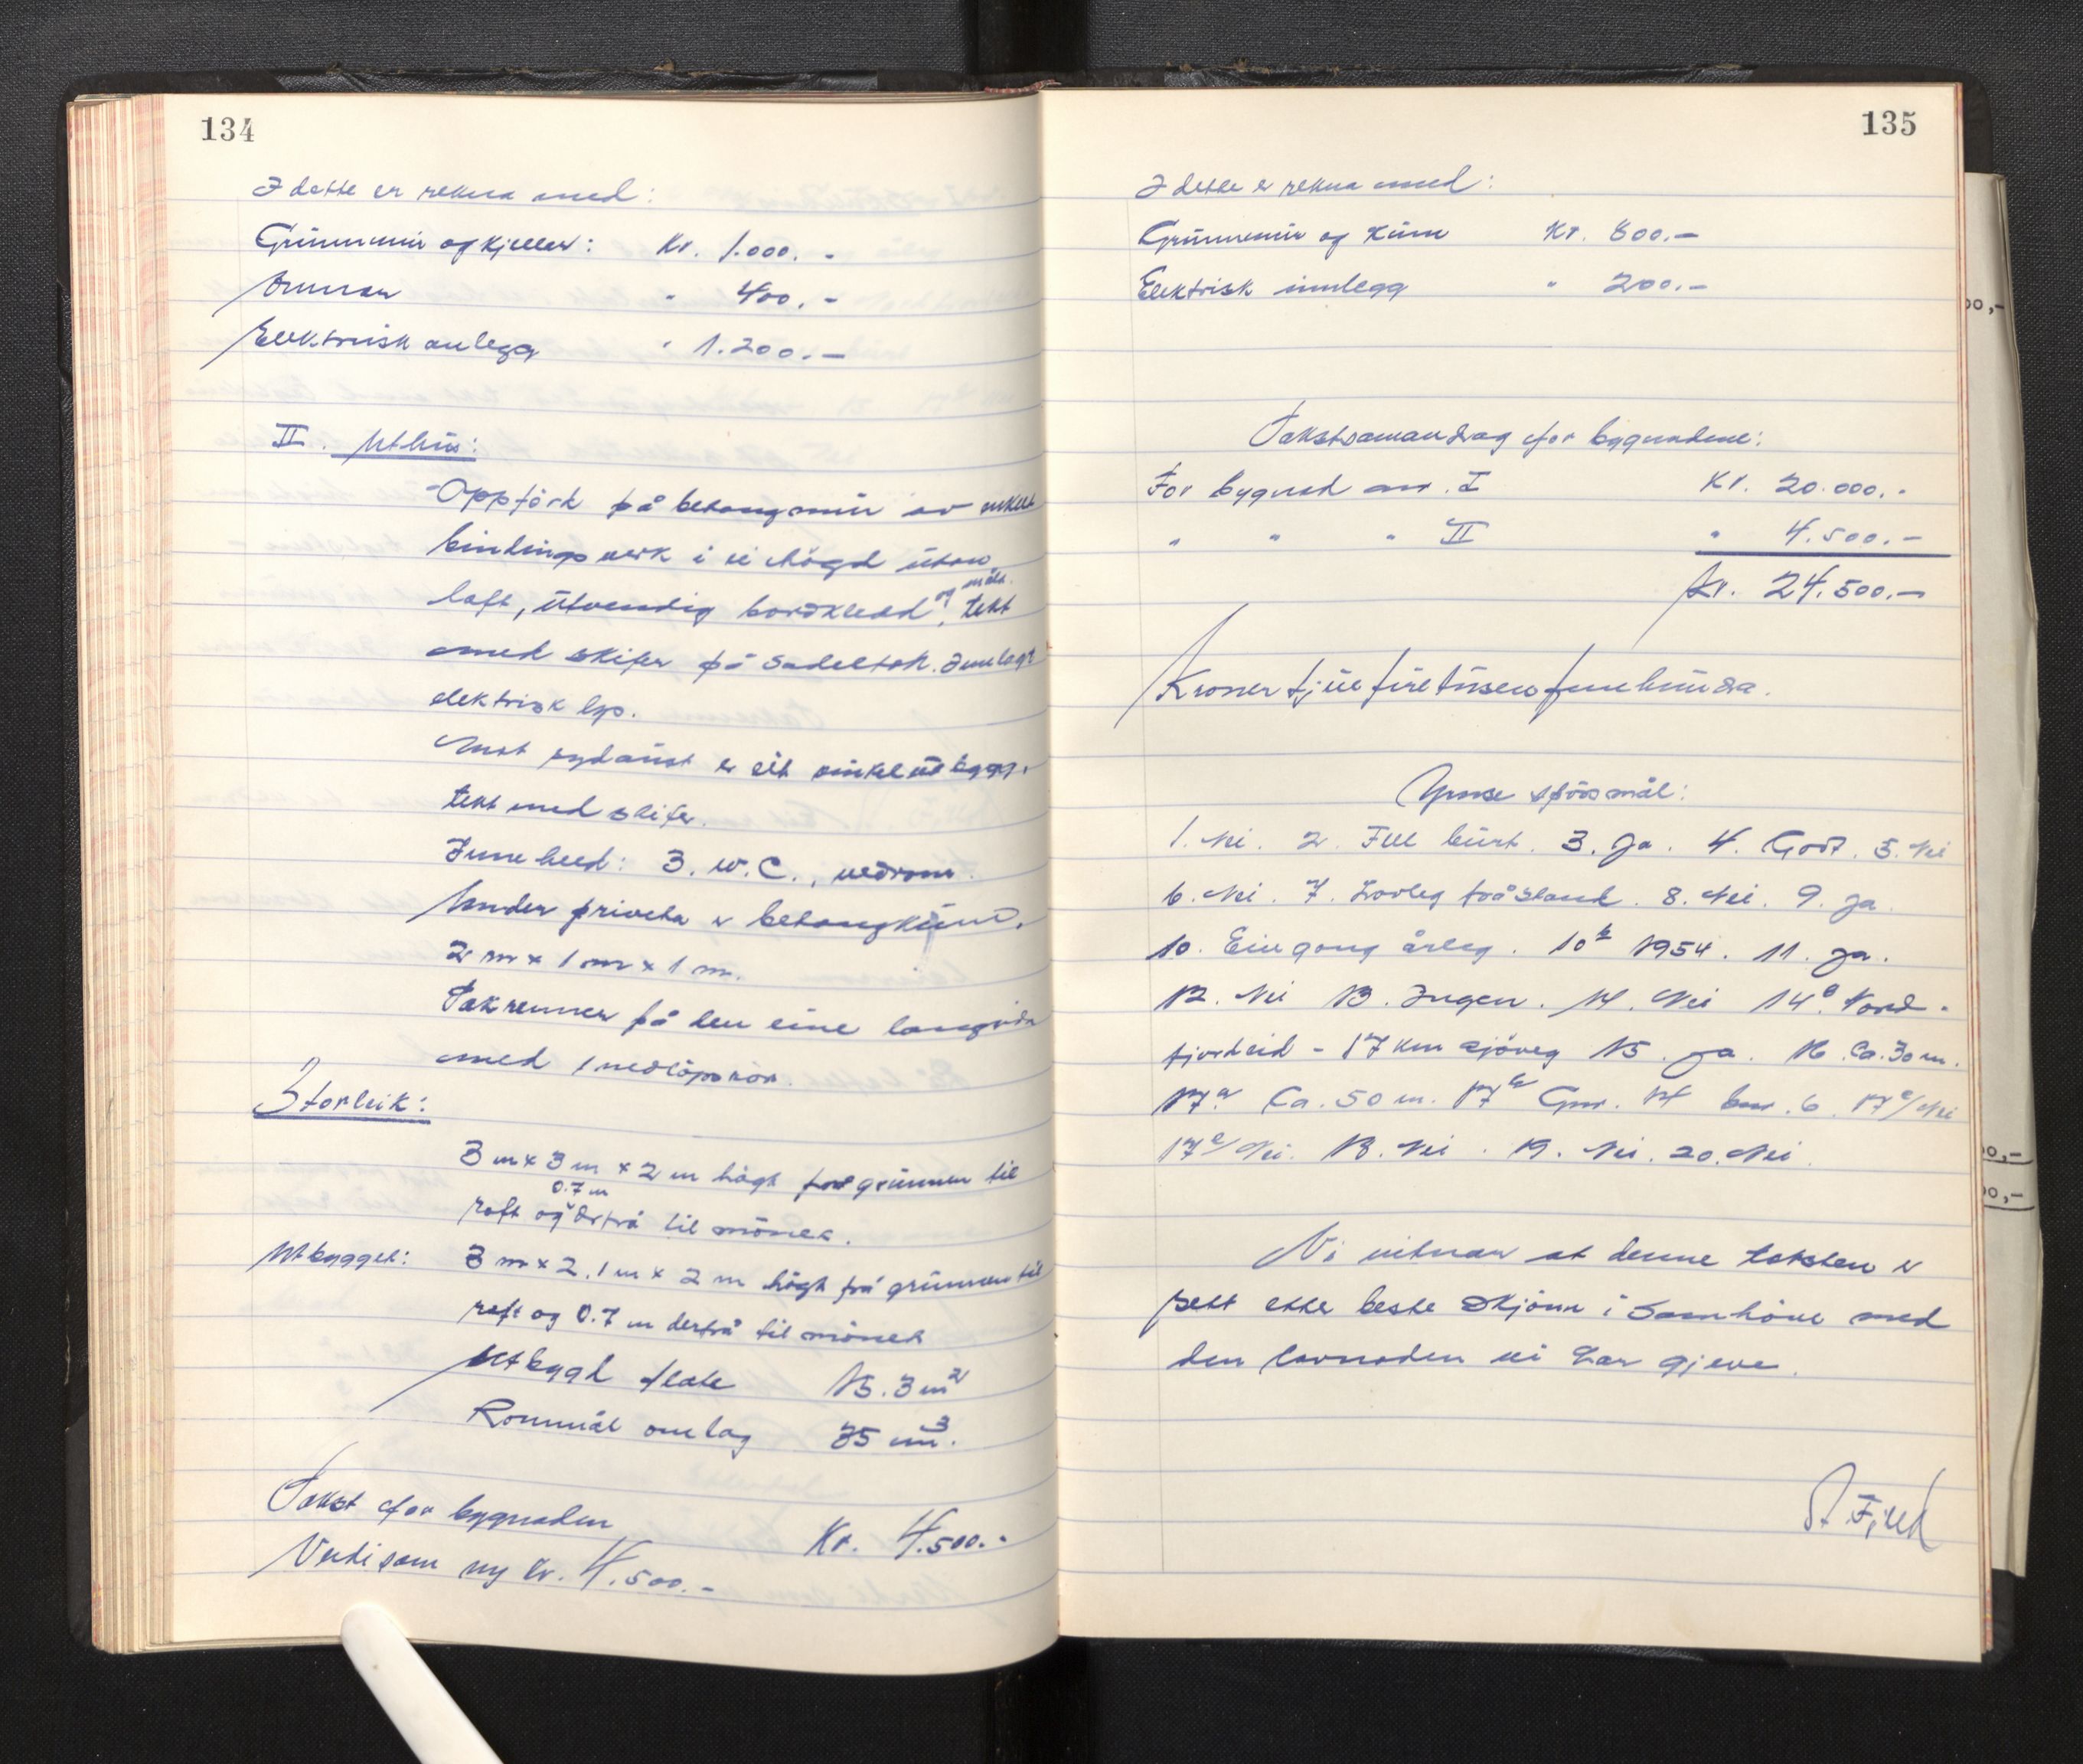 134
I dette er rekna med:
Grunnmur og kjeller: Kr. 1.000.-
Omnar " 400.-
Elektrisk anlegg " 1.200.-
II. Uthus:
Oppført på betongmur av enkelt
bindingsverk i ei høgd utan
loft, utvendig bordkledd og målt, tekt
med skifer på sadeltak. Innlagt
elektrisk lys.
Mot sydaust er eit vinkelutbygg,
tekt med skifer.
Inneheld: 3. W.C., vedrom.
Under priveta er betongkum,
2 m x 1 m x 1 m.
Takrenner på den eine langsida
med 1 nedløpsrør.
Storleik:
3 m x 3 m x 2 m høgt frå grunnen til
raft og 0.7 m derfrå til mønet.
Utbygget: 3 m x 2.1 m x 2 m høgt frå grunnen til
raft og 0.7 m derfrå til mønet
Utbygd flate 15.3 m²
Rommål omlag 35 m³.
Takst for bygnaden Kr. 4.500.-
Verdi som ny kr. 4.500.-
135
I dette er rekna med:
Grunnmur og kum Kr. 800.-
Elektrisk innlegg " 200.-
Takstsamandrag for bygnadene:
For bygnad nr. I Kr. 20.000.-
" " " II " 4.500.-
Kr. 24.500.-
Kroner tjuefiretusenfemhundra.
Ymse spørsmål:
1. Nei. 2. Fell burt. 3. Ja. 4. Godt. 5. Nei
6. Nei. 7. Lovleg fråstand. 8. Nei. 9. Ja
10. Ein gong årleg. 10b 1954. 11. Ja.
12. Nei 13. Ingen. 14. Nei 14b. Nord-
fjordeid - 17 km sjøveg 15. Ja. 16. Ca. 30 m.
17a. Ca. 50 m. 17b Gnr. 14 bnr. 6. 17c/ Nei
17e/ Nei. 18. Nei. 19. Nei. 20. Nei.
Vi vitnar at denne taksten er
sett etter beste skjønn i samhøve med
den lovnaden vi har gjeve.